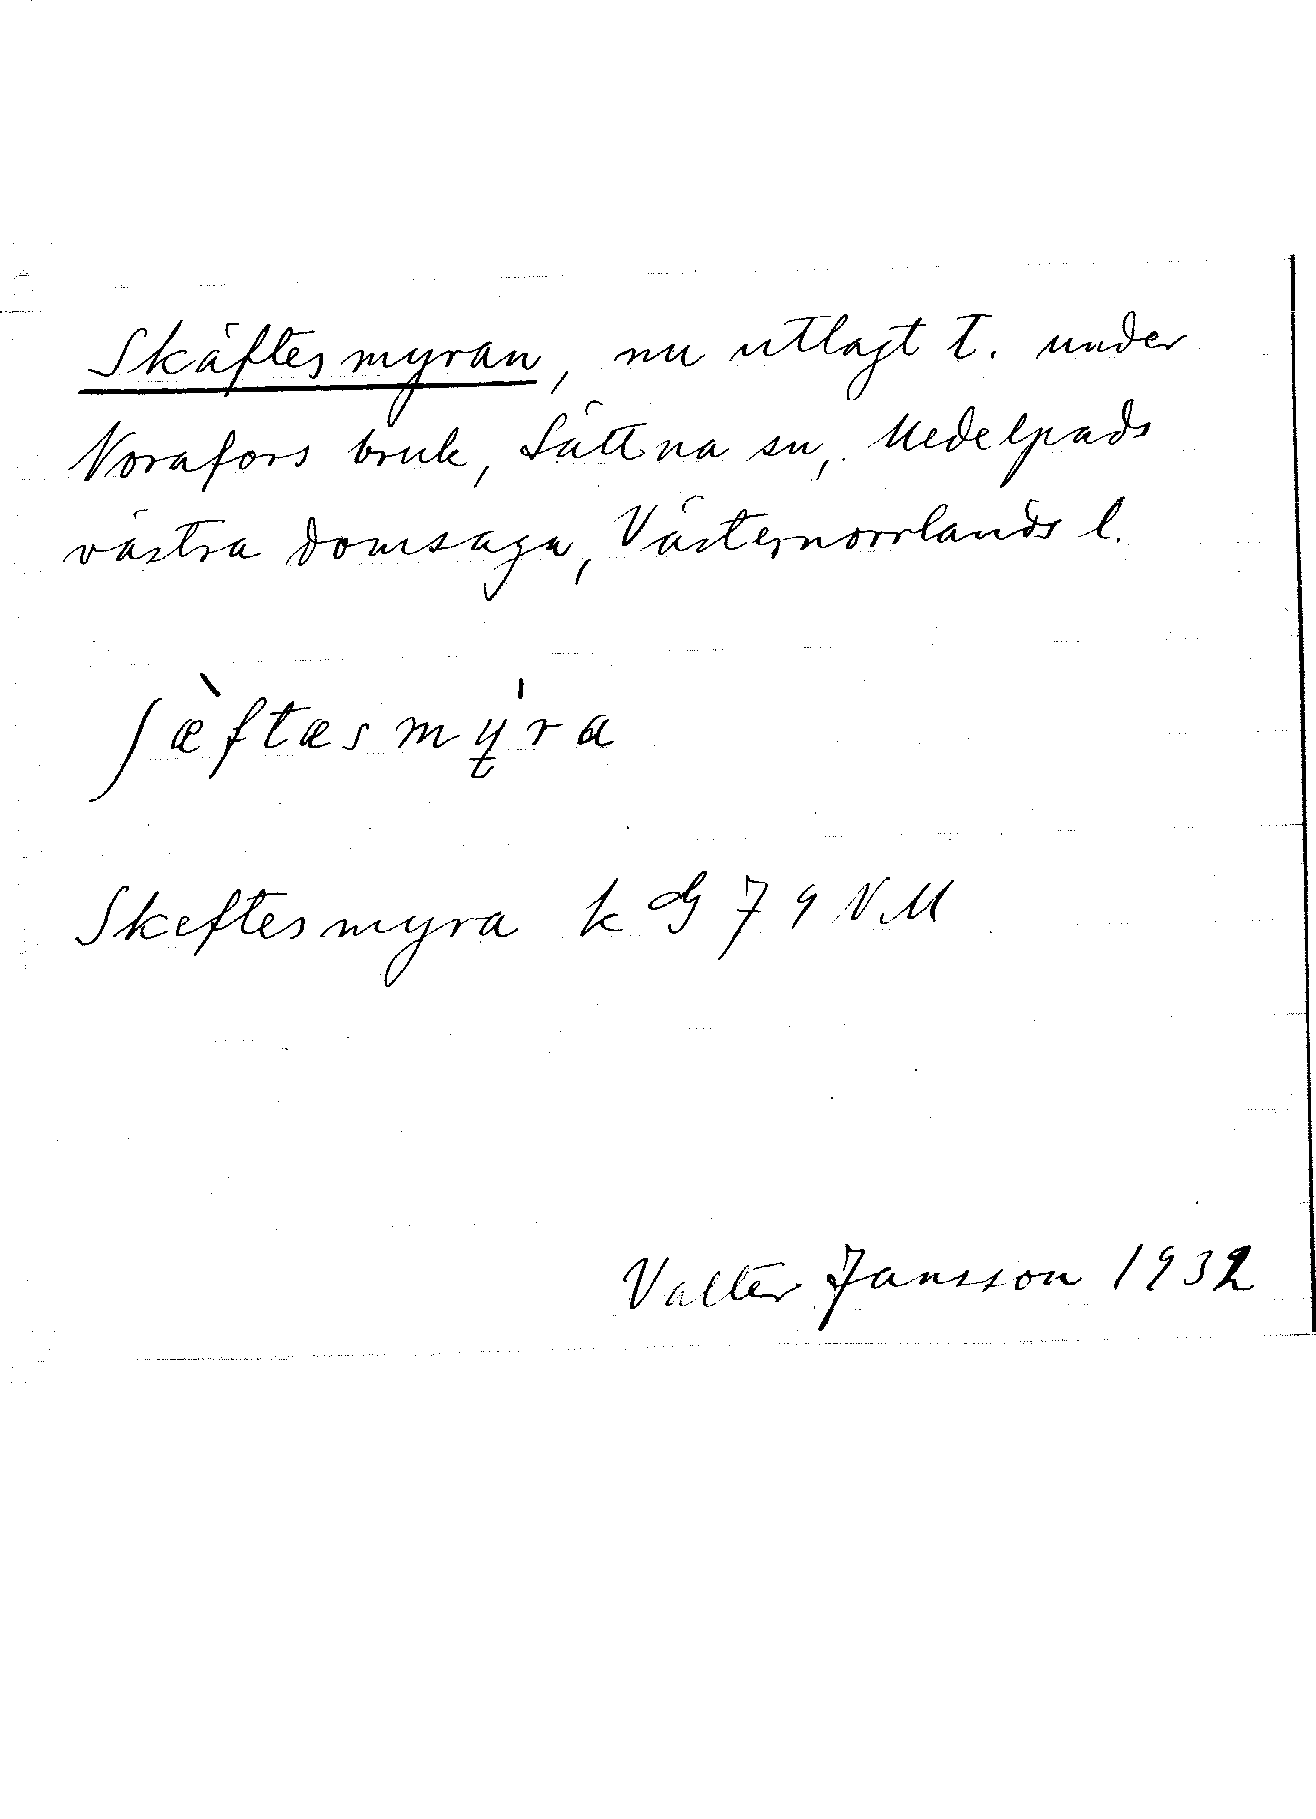 Skäftesmyran, nu utlagt t. under
Norafors bruk, Sättna sn, Medelpads
västra domsaga, Västernorrlands l.
ʃæ̀ftæsmy̨̍ra
Skeftesmyra k G 79 NM
Valter Jansson 1932